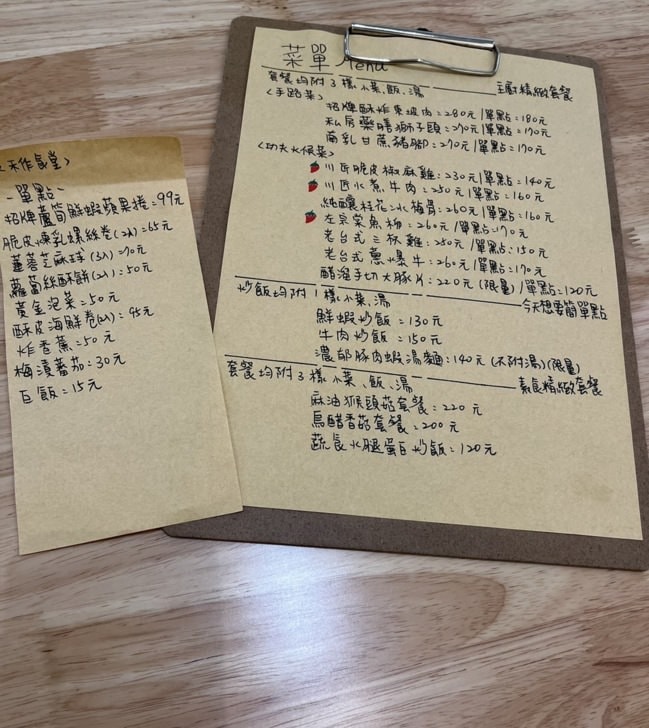 菜單 Menu
套餐均附3樣小菜、飯、湯
主廚精緻套餐
<手路菜>
招牌酥炸東坡肉=280元/單點:180元
私房藥膳獅子頭:270元/單點:170元
南乳甘蔗豬腳:270元/單點:170元
<功夫火候菜>
川匠脆皮椒麻雞:230元/單點:140元
川匠水煮牛肉:250元/單點:160元
純釀桂花冰梅骨:260元/單點:160元
左宗棠魚柳:260元/單點:170元
老台式三杯雞:250元/單點:150元
老台式蔥爆牛:260元/單點:170元
醋溜手切大豚片:220元(限量)/單點:120元
今天想要簡單點
炒飯均附1樣小菜、湯
鮮蝦炒飯=130元
牛肉炒飯=150元
濃郁豚肉蝦湯麵:140元(不附湯)(限量)
素食精緻套餐
套餐均附3樣小菜、飯、湯
麻油猴頭菇套餐:220元
烏醋香菇套餐:200元
蔬食火腿蛋白炒飯:120元
禾作食堂>
-單點-
招牌蘆筍鮮蝦蘋果捲:99元
脆皮煉乳螺絲卷(2入):65元
薑薯芝麻球(3入)=70元
蘿蔔絲酥餅(2入):50元
黃金泡菜=50元
酥皮海鮮卷(2入):95元
炸香蕉:50元
梅漬番茄:30元
白飯=15元